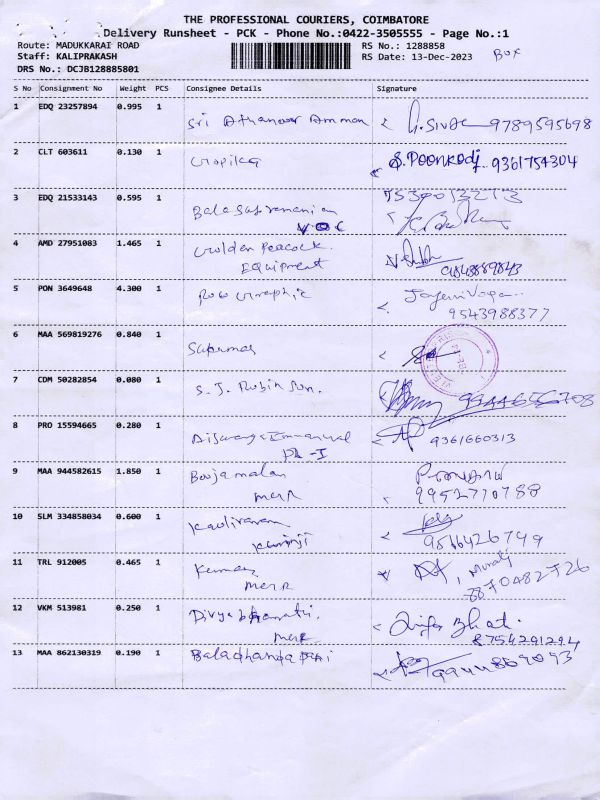 THE PROFESSIONAL COURIERS, COIMBATORE
Delivery Runsheet - PCK - Phone No.:0422-3505555 - Page No.:1
Route: MADUKKARAI ROAD RS No.: 1288858
Staff: KALIPRAKASH RS Date: 13-Dec-2023 Box
DRS No.: DCJB128885801
S No Consignment No Weight PCS Consignee Details Signature
1 EDQ 23257894 0.995 1
Sri Athanoor Amman 9789595698
2 CLT 603611 0.130 1
Gopika S. Poonkodi 9361754304
3 EDQ 21533143 0.595 1
7539013213
Bala Supramanian
VOC
4 AMD 27951083 1.465 1
Golden Peacock
Equipment
5 PON 3649648 4.300 1
9543988377
6 MAA 569819276 0.840 1
7 CDM 50282854 0.080 1
S. J. Robin Son.
8 PRO 15594665 0.280 1
9361660313
PH-I
9 MAA 944582615 1.850 1
9952770788
10 SLM 334858034 0.600 1
9566426749
11 TRL 912005 0.465 1
Kumar Murali
8870482726
12 VKM 513981 0.250 1
Divya bharathi.
8754291294
13 MAA 862130319 0.190 1
Baladhandapani